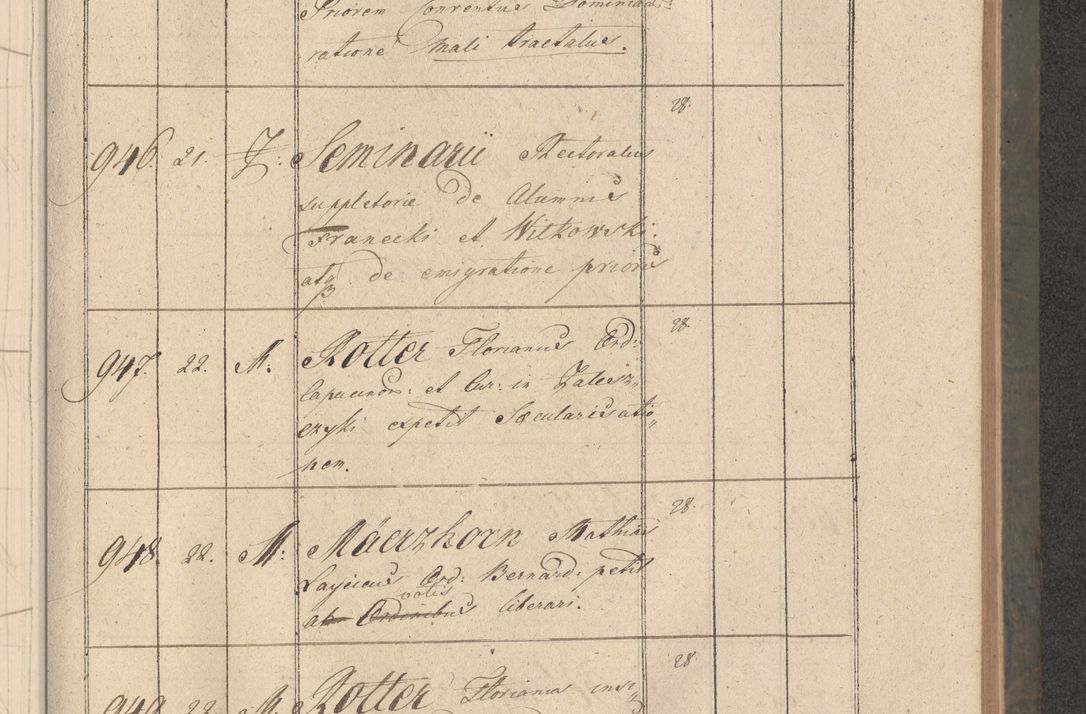 Priorem Conventus Dominica
ratione mali tractatus.
28.
946. 21. F. Seminarii Rectoratus
suppletorie de Alumnis
Franecki et Witkowski.
atq de emigratione prioris
28.
947. 22. M. Rotter Florianus Ord:
Capucinor: et Cur: in Zalesz„
czyki expetit Sæcularisatio„
nem.
28.
948. 22. M. Máerzhorn Mathias
Layicus Ord: Bernard: petit
votis
ab Ordinibus liberari.
28
949. 22. M. Rotter Florianus insi„